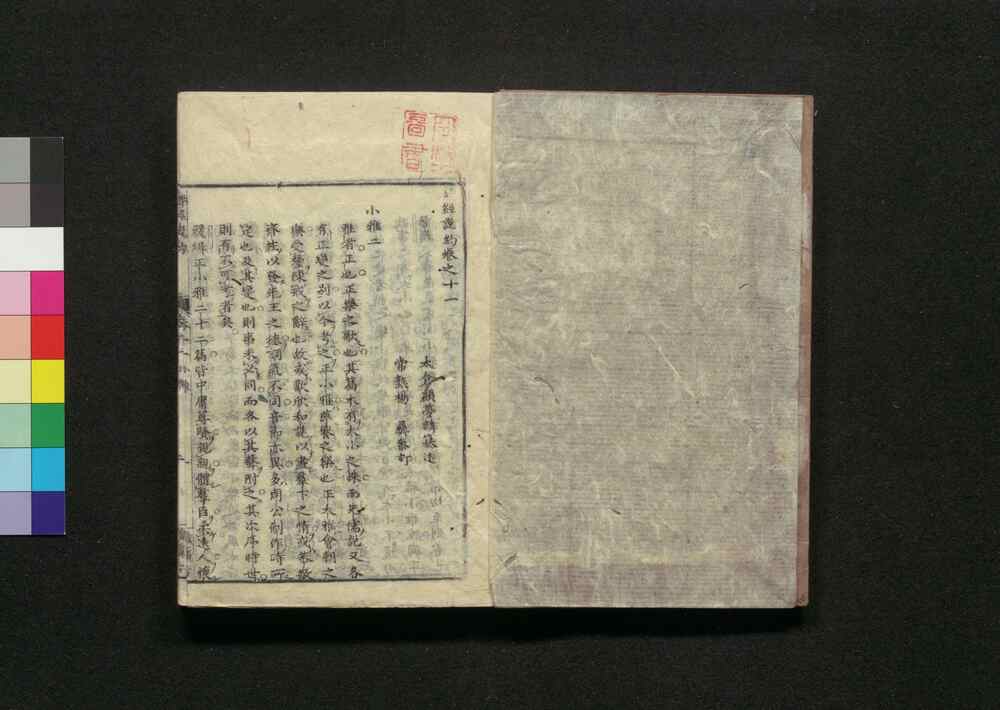 經說約卷之十一
太倉顧夢麟纂述
常熟楊 彝參訂
小雅二
雅者正也正樂之歌也其篇本有大小之殊而先儒說又各
有正變之別以今考之正小雅燕饗之樂也正大雅會朝之
樂受釐陳戒之辭也故或歡欣和說以盡羣下之情或恭敬
齊莊以發先王之德詞氣不同音節亦異多周公制作時所
定也及其變也則事未必同而各以其聲附之其次序時世
則有不可考者矣
正小雅二十二篇皆中庸尊賢親親體羣臣柔遠人懷